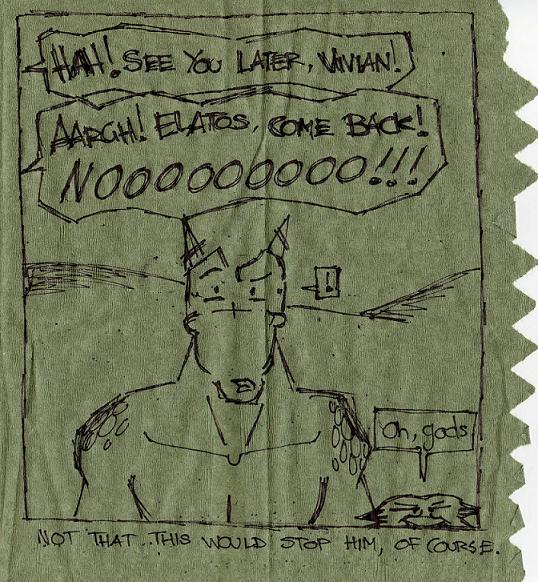 HAH! SEE YOU LATER, VIVIAN!
AARGH! ELATIOS, COME BACK!
NOOOOOOOOOO!!!
!
Oh, gods
NOT THAT THIS WOULD STOP HIM, OF COURSE.